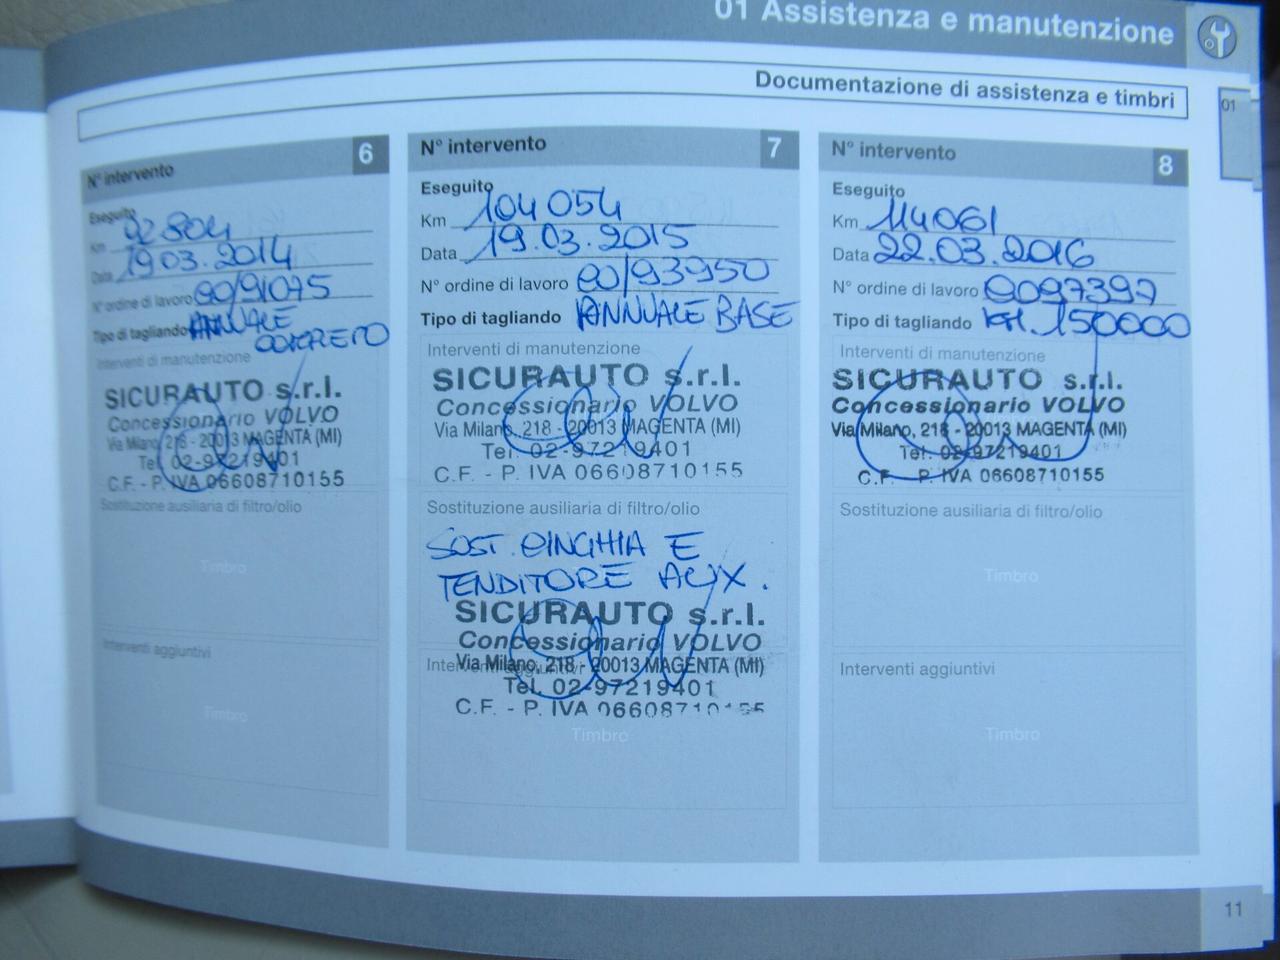 01 Assistenza e manutenzione
Documentazione di assistenza e timbri
01
N° intervento 6
Eseguito
Km 92804
Data 19.03.2014
N° ordine di lavoro 00/91075
Tipo di tagliando ANNUALE
COMPLETO
Interventi di manutenzione
SICURAUTO s.r.l.
Concessionario VOLVO
Via Milano, 218 - 20013 MAGENTA (MI)
Tel. 02-97219401
C.F. - P. IVA 06608710155
Sostituzione ausiliaria di filtro/olio
Timbro
Interventi aggiuntivi
Timbro
N° intervento 7
Eseguito
Km 104054
Data 19.03.2015
N° ordine di lavoro 00/93950
Tipo di tagliando ANNUALE BASE
Interventi di manutenzione
SICURAUTO s.r.l.
Concessionario VOLVO
Via Milano, 218 - 20013 MAGENTA (MI)
Tel. 02-97219401
C.F. - P. IVA 06608710155
Sostituzione ausiliaria di filtro/olio
SOST. CINGHIA E
TENDITORE AUX.
SICURAUTO s.r.l.
Concessionario VOLVO
Interventi aggiuntivi
Via Milano, 218 - 20013 MAGENTA (MI)
Tel. 02-97219401
C.F. - P. IVA 06608710155
Timbro
N° intervento 8
Eseguito
Km 114061
Data 22.03.2016
N° ordine di lavoro 0097397
Tipo di tagliando KM. 150000
Interventi di manutenzione
SICURAUTO s.r.l.
Concessionario VOLVO
Via Milano, 218 - 20013 MAGENTA (MI)
Tel. 02-97219401
C.F. - P. IVA 06608710155
Sostituzione ausiliaria di filtro/olio
Timbro
Interventi aggiuntivi
Timbro
11